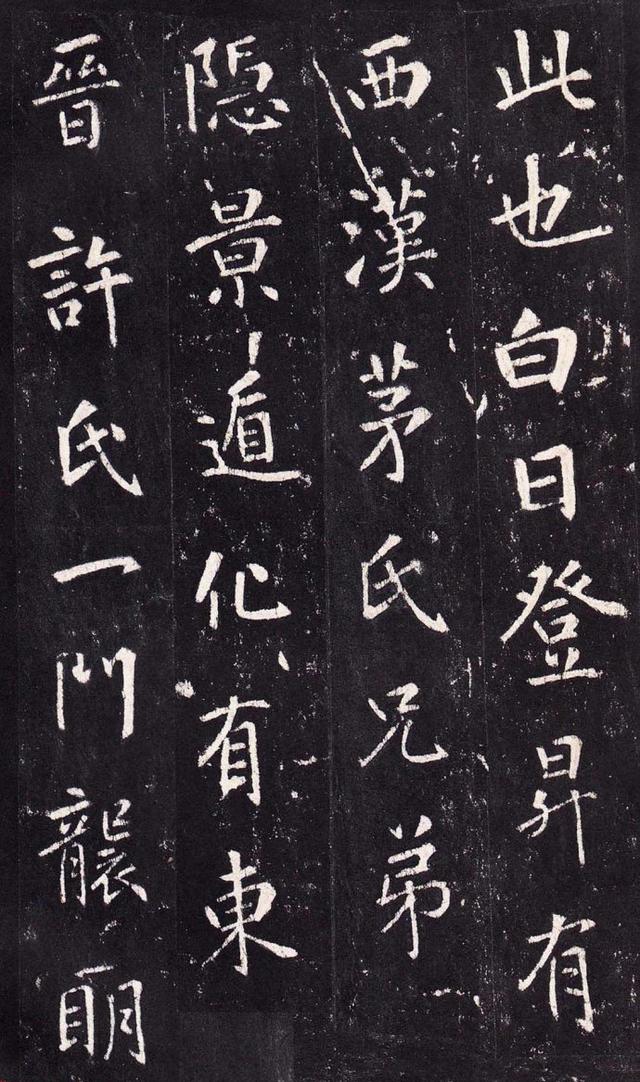 此也白日登昇有
西漢茅氏兄弟
隱景遁化有東
晉許氏一門襲明